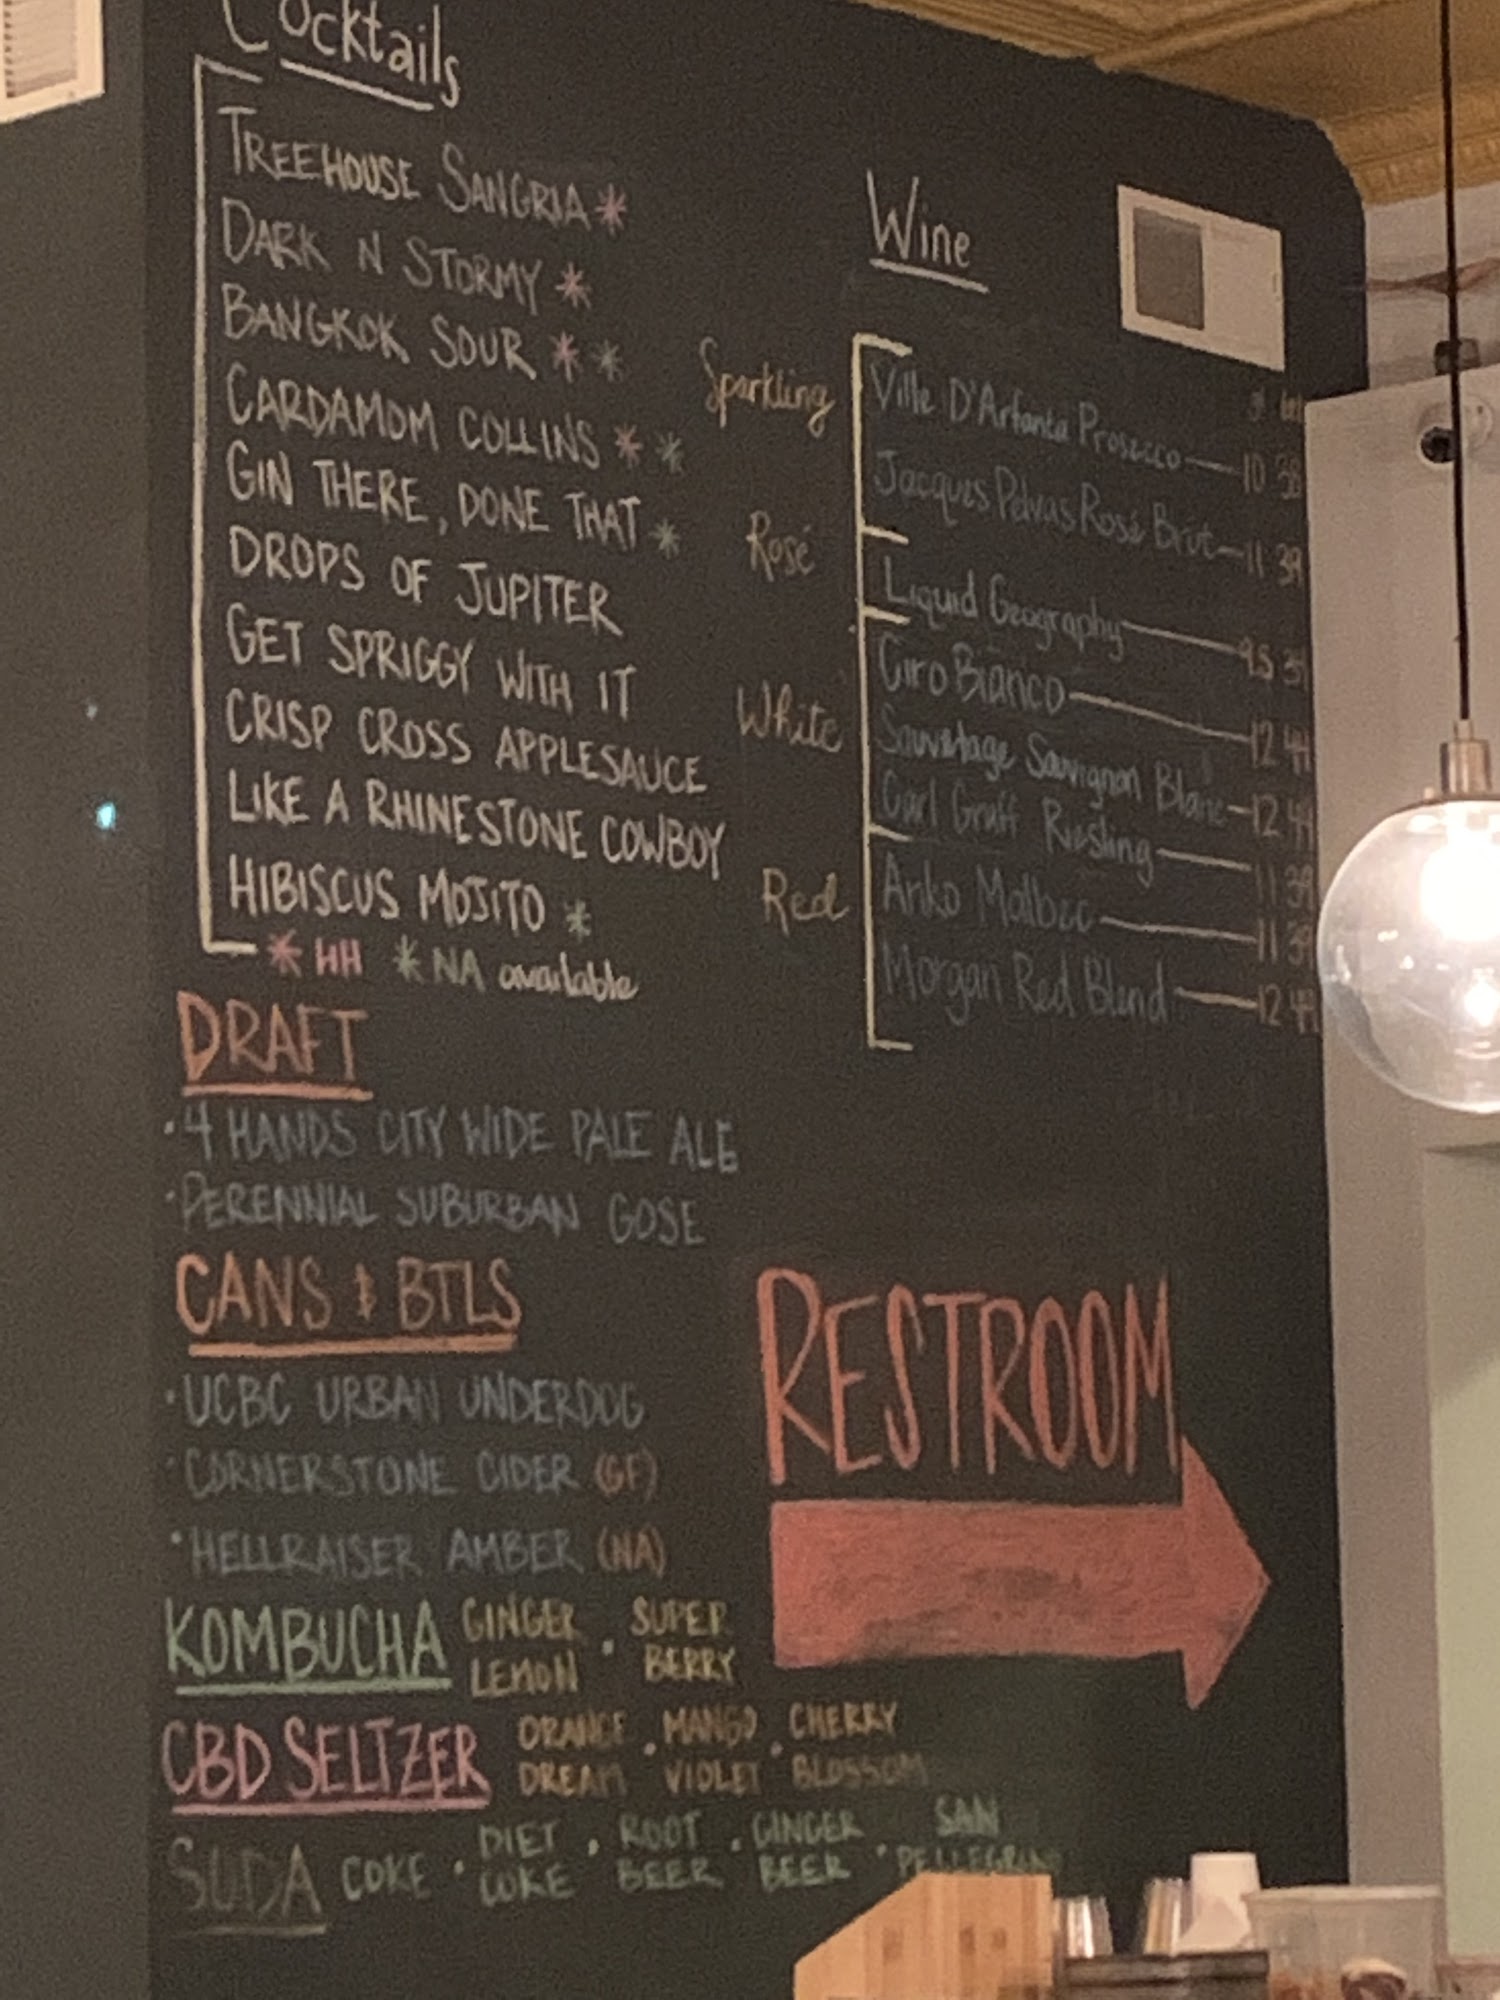 Cocktails
TREEHOUSE SANGRIA *
DARK N STORMY *
BANGKOK SOUR * *
CARDAMOM COLLINS * *
GIN THERE, DONE THAT *
DROPS OF JUPITER
GET SPRIGGY WITH IT
CRISP CROSS APPLESAUCE
LIKE A RHINESTONE COWBOY
HIBISCUS MOJITO *
* HH * NA available
Wine
Sparkling
Ville D'Arfanta Prosecco — 10 38
Jacques Pelvas Rosé Brut — 11 39
Rosé
Liquid Geography — 9.5
White
Ciro Bianco — 12 44
Sauvetage Sauvignon Blanc — 12 44
Carl Graff Riesling — 11 39
Red
Anko Malbec — 11 39
Morgan Red Blend — 12 44
DRAFT
· 4 HANDS CITY WIDE PALE ALE
· PERENNIAL SUBURBAN GOSE
CANS & BTLS
· UCBC URBAN UNDERDOG
· CORNERSTONE CIDER (GF)
· HELLRAISER AMBER (NA)
RESTROOM
KOMBUCHA GINGER LEMON · SUPER BERRY
CBD SELTZER ORANGE DREAM · MANGO VIOLET · CHERRY BLOSSOM
SODA COKE · DIET COKE · ROOT BEER · GINGER BEER · SAN PELLEGRINO